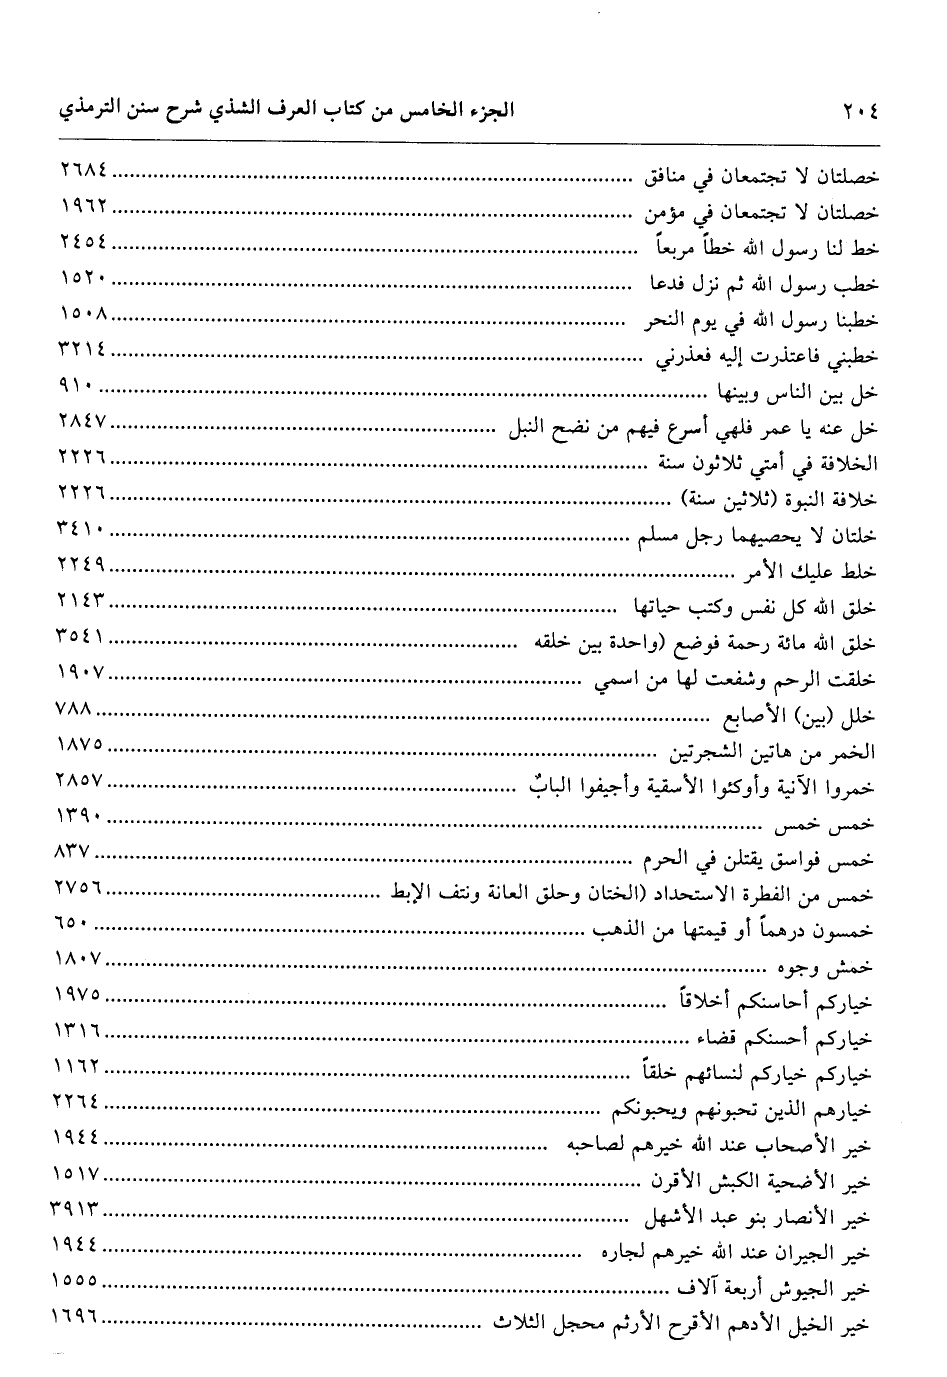 ٢٠٤ الجزء الخامس من كتاب العرف الشذي شرح سنن الترمذي
خصلتان لا تجتمعان في منافق ................ ٢٦٨٤
خصلتان لا تجتمعان في مؤمن ................ ١٩٦٢
خط لنا رسول الله خطاً مربعاً ................ ٢٤٥٤
خطب رسول الله ثم نزل فدعا ................ ١٥٢٠
خطبنا رسول الله في يوم النحر ................ ١٥٠٨
خطبني فاعتذرت إليه فعذرني ................ ٣٢١٤
خل بين الناس وبينها ................ ٩١٠
خل عنه يا عمر فلهي أسرع فيهم من نضح النبل ................ ٢٨٤٧
الخلافة في أمتي ثلاثون سنة ................ ٢٢٢٦
خلافة النبوة (ثلاثين سنة) ................ ٢٢٢٦
خلتان لا يحصيهما رجل مسلم ................ ٣٤١٠
خلط عليك الأمر ................ ٢٢٤٩
خلق الله كل نفس وكتب حياتها ................ ٢١٤٣
خلق الله مائة رحمة فوضع (واحدة بين خلقه ................ ٣٥٤١
خلقت الرحم وشفعت لها من اسمي ................ ١٩٠٧
خلل (بين) الأصابع ................ ٧٨٨
الخمر من هاتين الشجرتين ................ ١٨٧٥
خمروا الآنية وأوكئوا الأسقية وأجيفوا البابٌ ................ ٢٨٥٧
خمس خمس ................ ١٣٩٠
خمس فواسق يقتلن في الحرم ................ ٨٣٧
خمس من الفطرة الاستحداد (الختان وحلق العانة ونتف الإبط ................ ٢٧٥٦
خمسون درهماً أو قيمتها من الذهب ................ ٦٥٠
خمش وجوه ................ ١٨٠٧
خياركم أحاسنكم أخلاقاً ................ ١٩٧٥
خياركم أحسنكم قضاء ................ ١٣١٦
خياركم خياركم لنسائهم خلقاً ................ ١١٦٢
خيارهم الذين تحبونهم ويحبونكم ................ ٢٢٦٤
خير الأصحاب عند الله خيرهم لصاحبه ................ ١٩٤٤
خير الأضحية الكبش الأقرن ................ ١٥١٧
خير الأنصار بنو عبد الأشهل ................ ٣٩١٣
خير الجيران عند الله خيرهم لجاره ................ ١٩٤٤
خير الجيوش أربعة آلاف ................ ١٥٥٥
خير الخيل الأدهم الأقرح الأرثم محجل الثلاث ................ ١٦٩٦